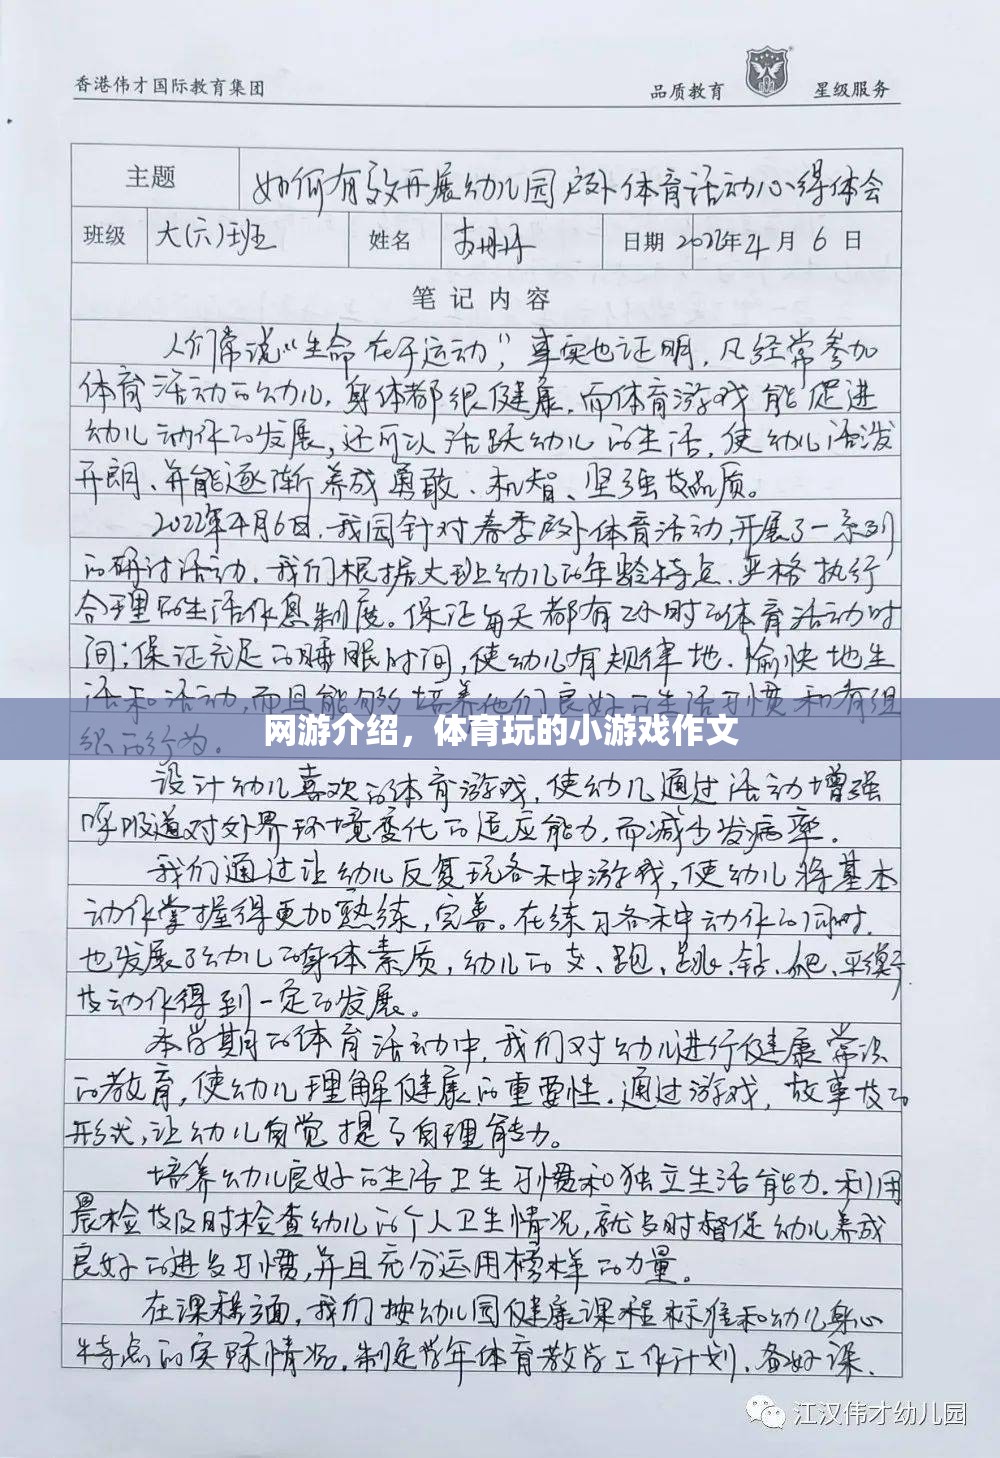 香港伟才国际教育集团 品质教育 星级服务
主题 如何有效开展幼儿园户外体育活动心得体会
班级 大(六)班 姓名 日期 2022年4月6日
笔记内容
人们常说“生命在于运动”,事实也证明,凡经常参加
体育活动的幼儿,身体都很健康,而体育游戏能促进
幼儿动作的发展,还可以活跃幼儿的生活,使幼儿活泼
开朗、并能逐渐养成勇敢、机智、坚强等品质。
2022年4月6日,我园针对春季户外体育活动,开展了一系列
的研讨活动。我们根据大班幼儿的年龄特点,严格执行
合理的生活作息制度。保证每天都有2小时的体育活动时
间;保证充足的睡眠时间,使幼儿有规律地、愉快地生
活和活动,而且能够培养他们良好的生活习惯和有组
织的行为。
网游介绍，体育玩的小游戏作文
设计幼儿喜欢的体育游戏,使幼儿通过活动增强
呼吸道对外界环境变化的适应能力,而减少发病率。
我们通过让幼儿反复玩各种游戏,使幼儿将基本
动作掌握得更加熟练,完善。在练习各种动作的同时,
也发展了幼儿的身体素质,幼儿的走、跑、跳、钻、爬、平衡
等动作得到一定的发展。
本学期的体育活动中,我们对幼儿进行健康常识
的教育,使幼儿理解健康的重要性。通过游戏,故事等的
形式,让幼儿自觉提了自理能力。
培养幼儿良好的生活卫生习惯和独立生活能力.利用
晨检等及时检查幼儿的个人卫生情况,就与时督促幼儿养成
良好的进与习惯,并且充分运用榜样的力量。
在课程方面,我们按幼儿园健康课程标准和幼儿身心
特点的实际情况,制定学年体育教学工作计划,备好课,
江汉伟才幼儿园